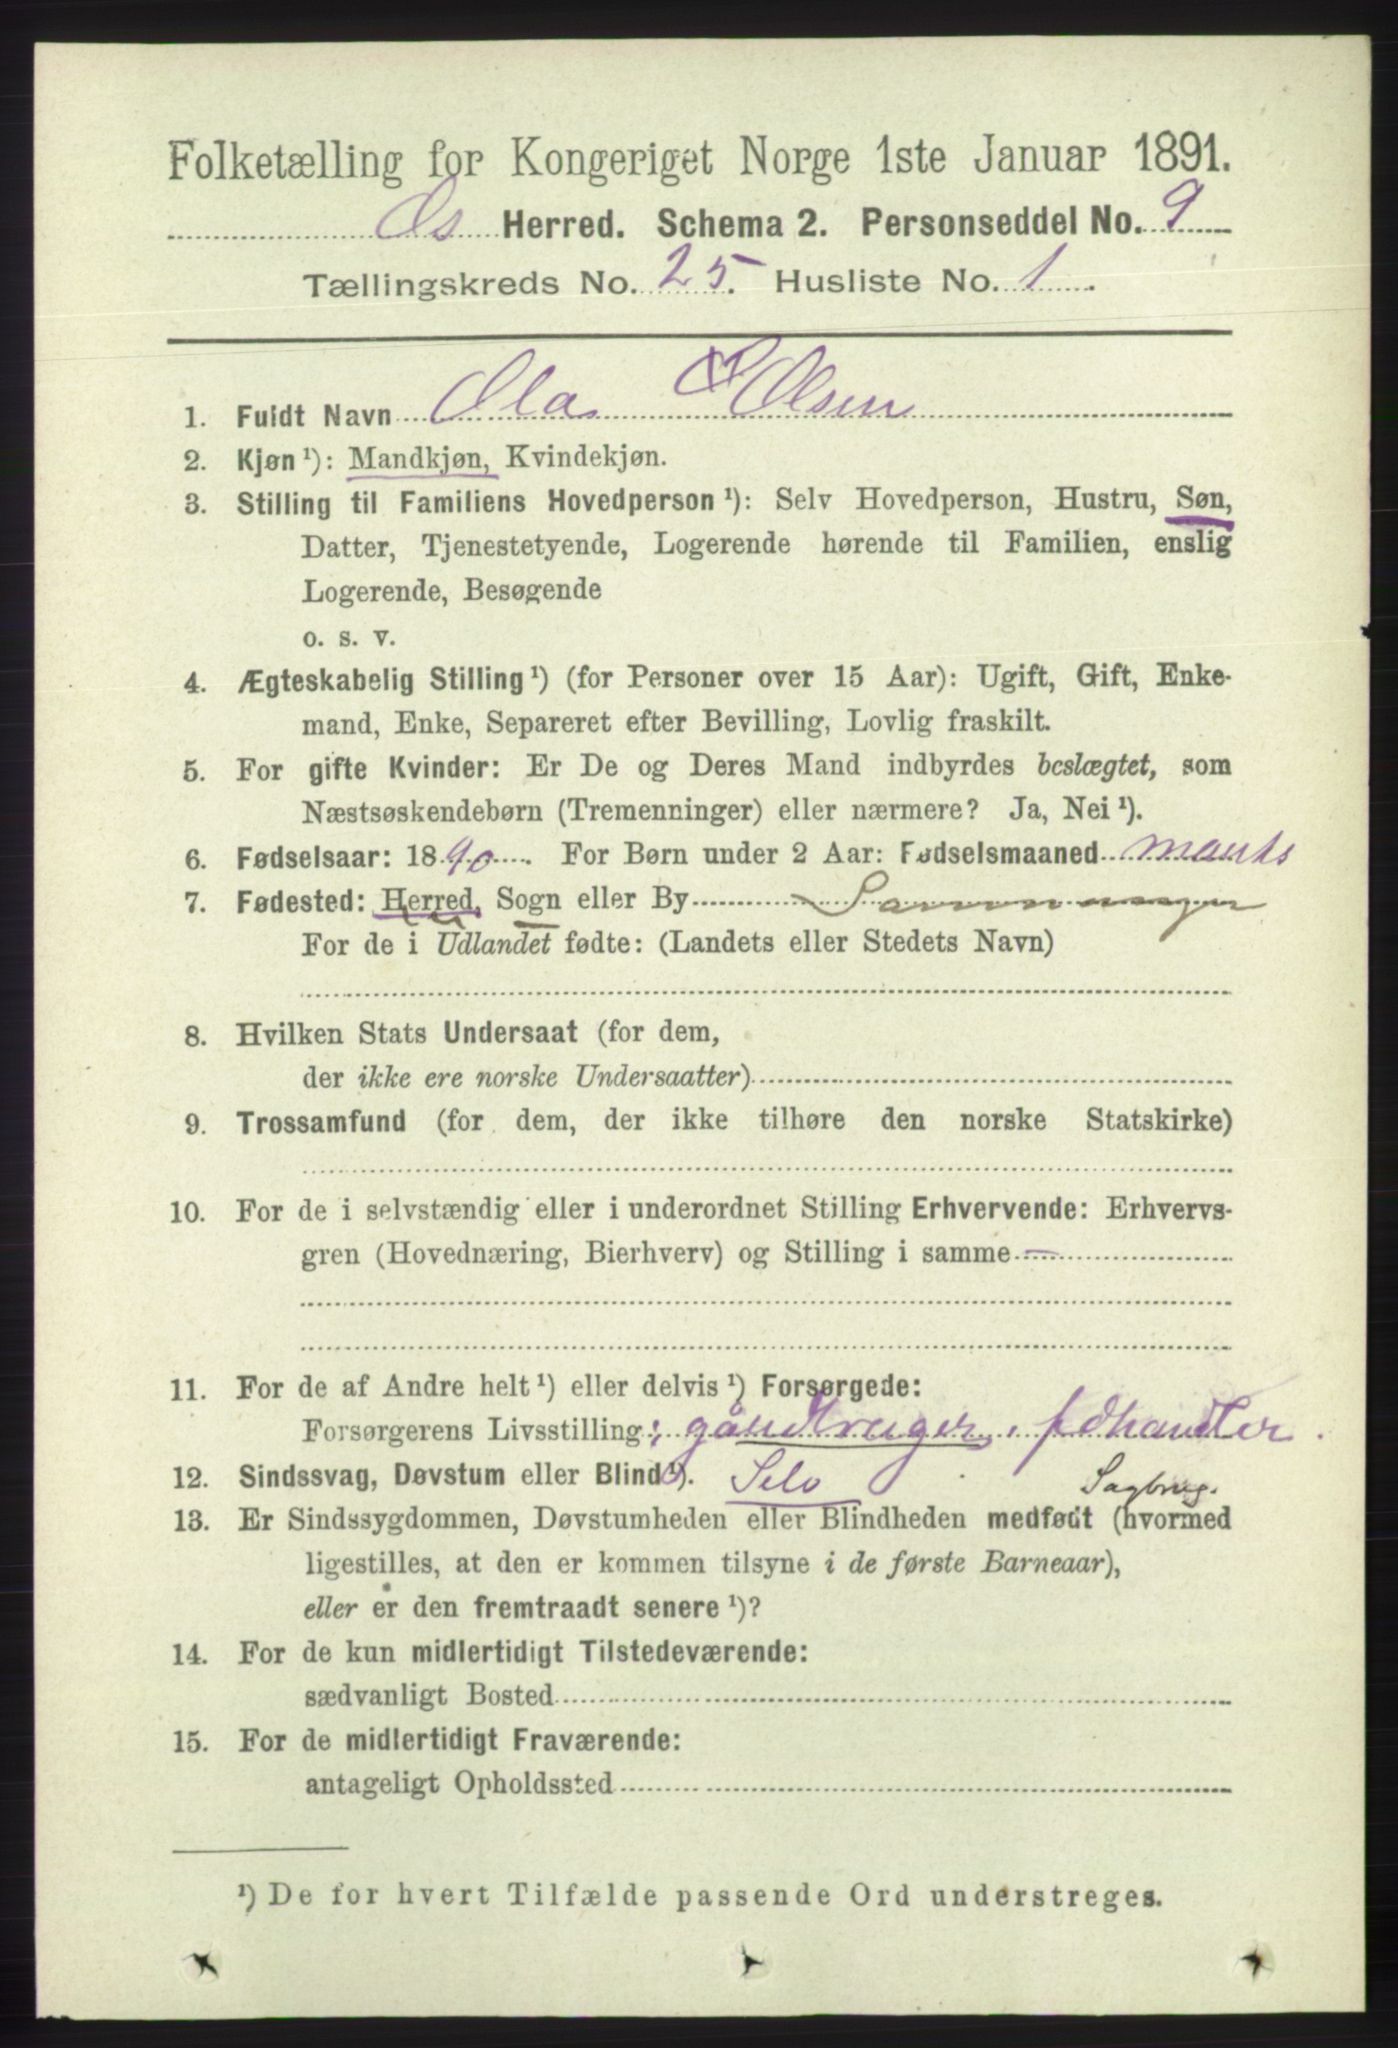 Folketælling for Kongeriget Norge 1ste Januar 1891.
Os Herred. Schema 2. Personseddel No. 9
Tællingskreds No. 25. Husliste No. 1.
1. Fuldt Navn Ola Olsen
2. Kjøn ¹): Mandkjøn, Kvindekjøn.
3. Stilling til Familiens Hovedperson ¹): Selv Hovedperson, Hustru, Søn,
Datter, Tjenestetyende, Logerende hørende til Familien, enslig
Logerende, Besøgende
o. s. v.
4. Ægteskabelig Stilling ¹) (for Personer over 15 Aar): Ugift, Gift, Enke-
mand, Enke, Separeret efter Bevilling, Lovlig fraskilt.
5. For gifte Kvinder: Er De og Deres Mand indbyrdes beslægtet, som
Næstsøskendebørn (Tremenninger) eller nærmere? Ja, Nei ¹).
6. Fødselsaar: 1890. For Børn under 2 Aar: Fødselsmaaned
7. Fødested: Herred, Sogn eller By
For de i Udlandet fødte: (Landets eller Stedets Navn)
8. Hvilken Stats Undersaat (for dem,
der ikke ere norske Undersaatter)
9. Trossamfund (for dem, der ikke tilhøre den norske Statskirke)
10. For de i selvstændig eller i underordnet Stilling Erhvervende: Erhvervs-
gren (Hovednæring, Bierhverv) og Stilling i samme —
11. For de af Andre helt ¹) eller delvis ¹) Forsørgede:
Forsørgerens Livsstilling:
12. Sindssvag, Døvstum eller Blind ¹). Selv Sagbrug.
13. Er Sindssygdommen, Døvstumheden eller Blindheden medfødt (hvormed
ligestilles, at den er kommen tilsyne i de første Barneaar),
eller er den fremtraadt senere ¹)?
14. For de kun midlertidigt Tilstedeværende:
sædvanligt Bosted
15. For de midlertidigt Fraværende:
antageligt Opholdssted
¹) De for hvert Tilfælde passende Ord understreges.